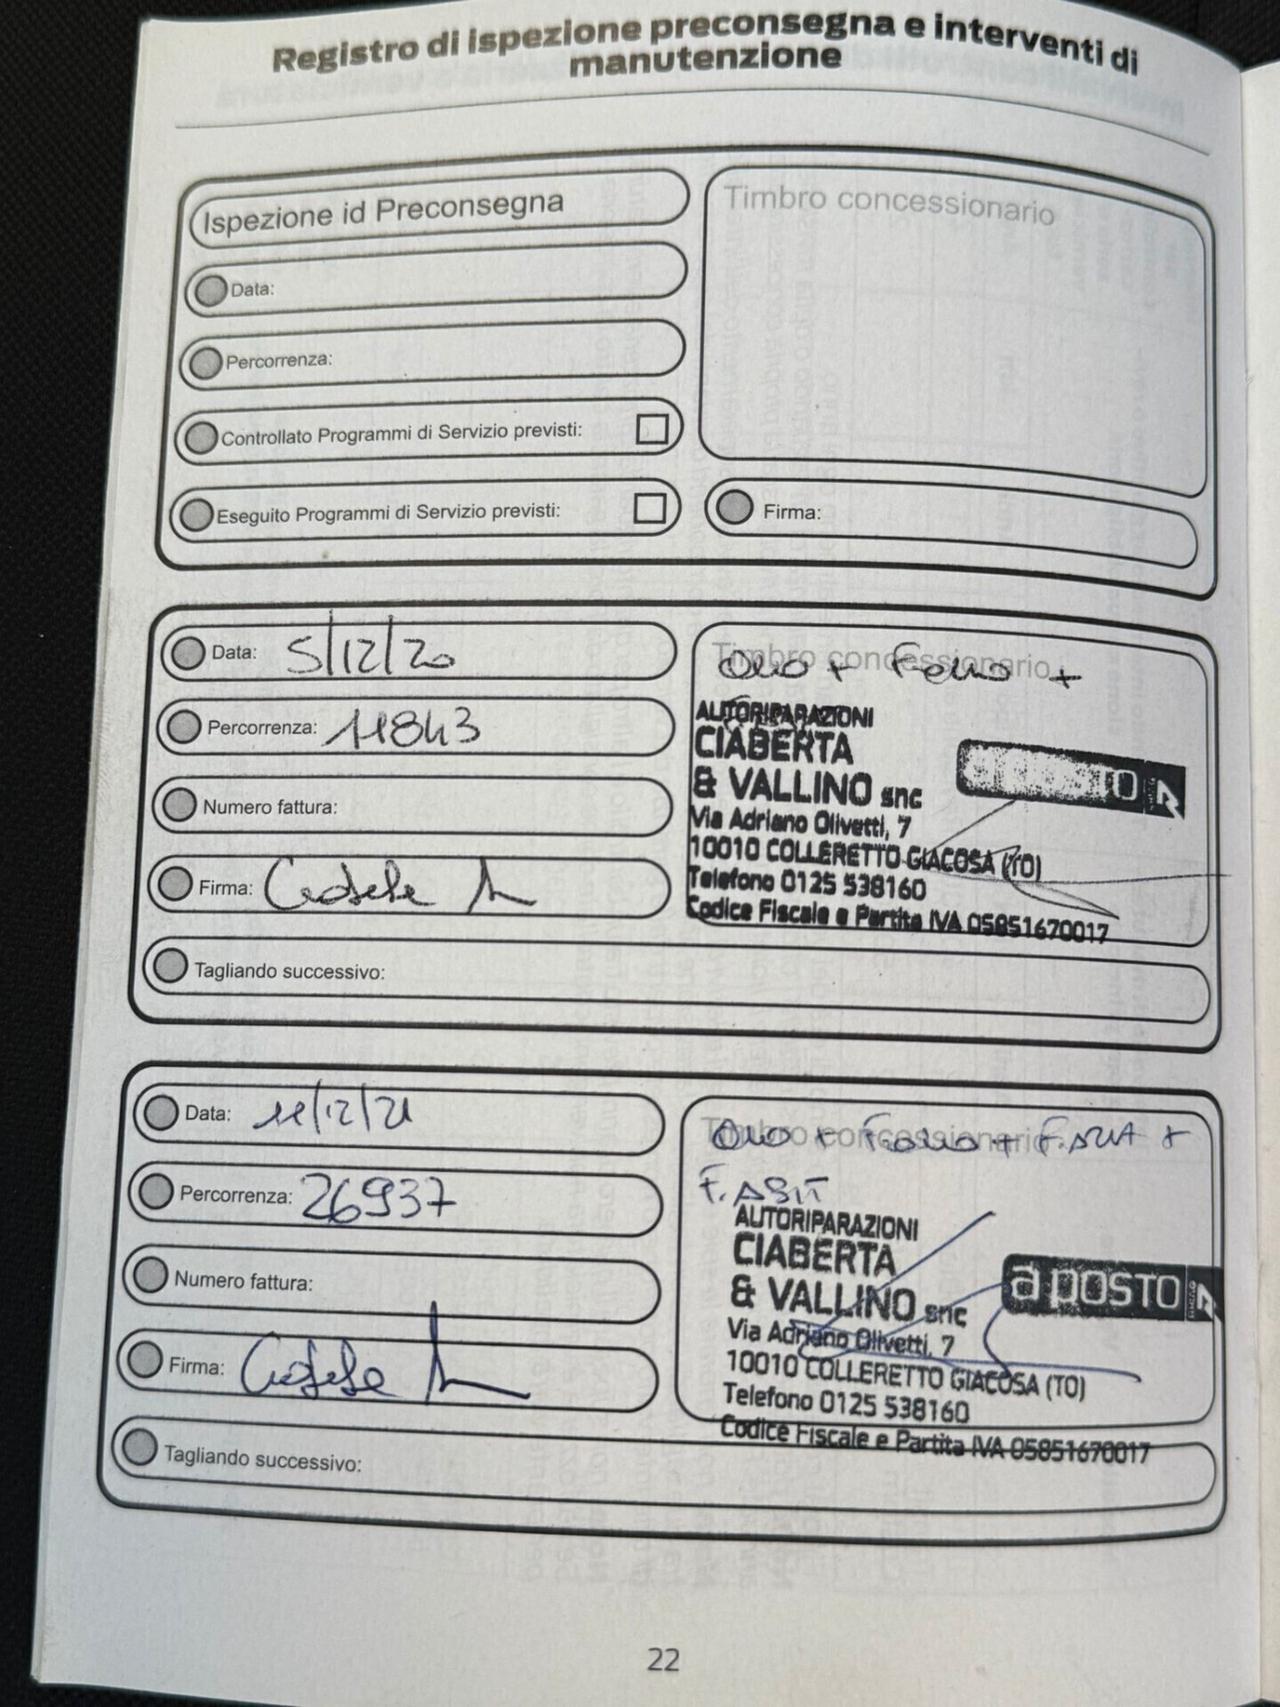 Registro di ispezione preconsegna e interventi di
manutenzione
Ispezione id Preconsegna
Timbro concessionario
Data:
Percorrenza:
Controllato Programmi di Servizio previsti:
Eseguito Programmi di Servizio previsti:
Firma:
Data: 5/12/20
Percorrenza: 11843
Numero fattura:
Firma:
Tagliando successivo:
Timbro concessionario
Olio +
+
AUTORIPARAZIONI
CIABERTA
& VALLINO snc
Via Adriano Olivetti, 7
10010 COLLERETTO GIACOSA (TO)
Telefono 0125 538160
Codice Fiscale e Partita IVA 05851670017
a posto
Data: 11/12/21
Percorrenza: 26937
Numero fattura:
Firma:
Tagliando successivo:
Timbro concessionario
Olio + + F. ARIA +
F. ABIT
AUTORIPARAZIONI
CIABERTA
& VALLINO snc
Via Adriano Olivetti, 7
10010 COLLERETTO GIACOSA (TO)
Telefono 0125 538160
Codice Fiscale e Partita IVA 05851670017
a posto
22